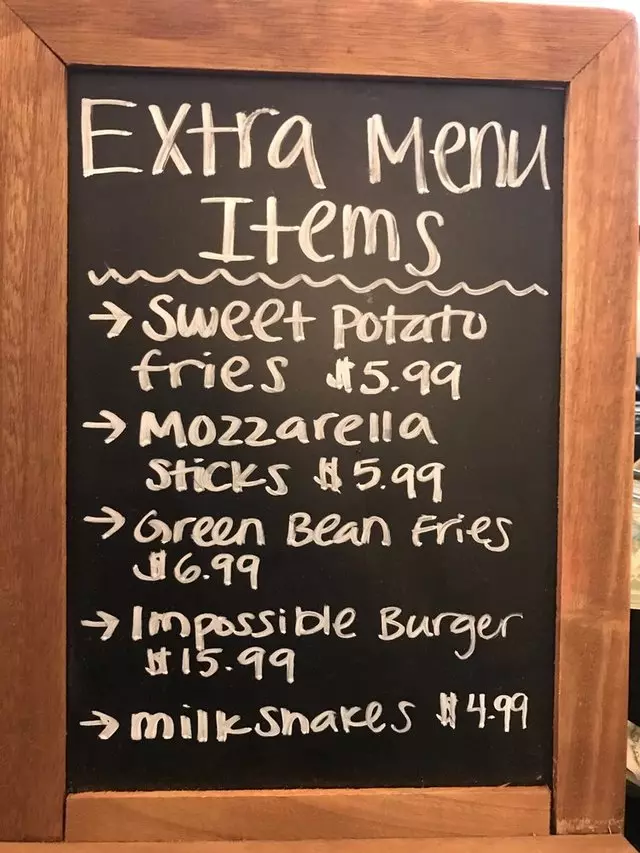 Extra Menu
Items
→ Sweet Potato
fries $5.99
→ Mozzarella
Sticks $5.99
→ Green Bean Fries
$6.99
→ Impossible Burger
$15.99
→ milkshakes $4.99